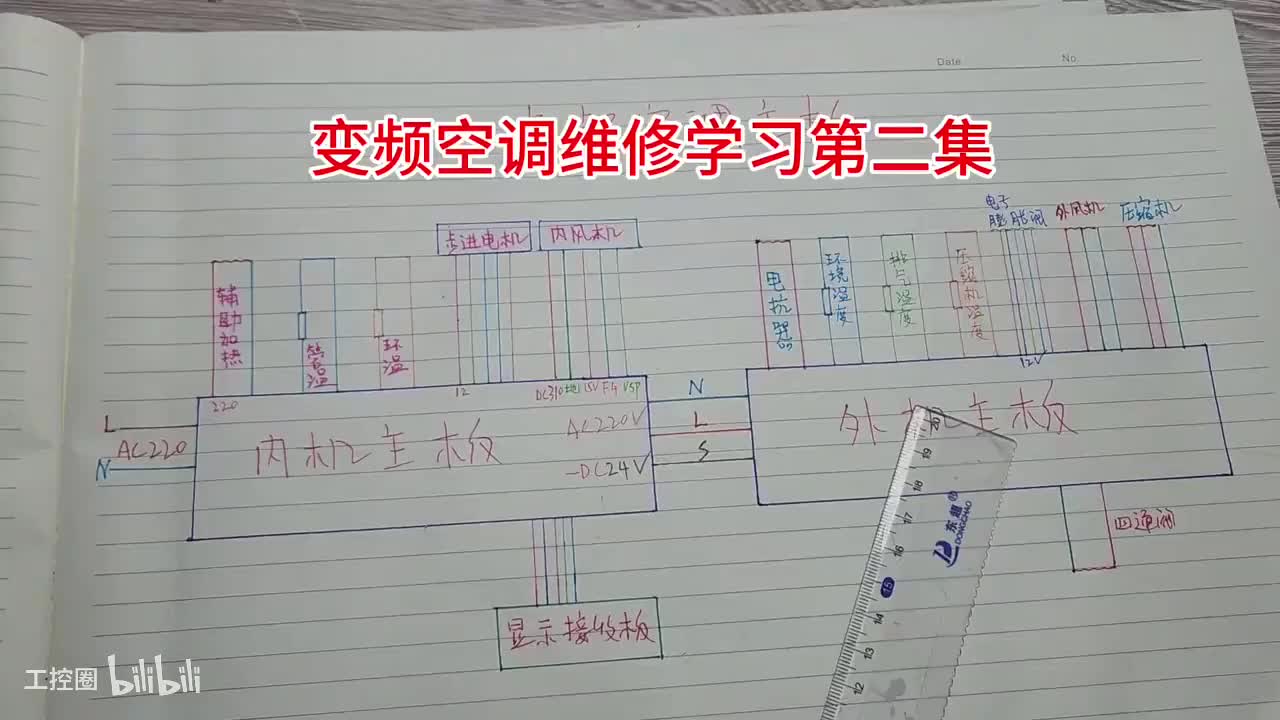 Date
No
变频空调维修学习第二集
电子
膨胀阀
外风机
压缩机
步进电机
内风机
辅助加热
管温
环温
电抗器
环境温度
排气温度
压缩机温度
220
12
DC310地15V FG VSP
12V
L
AC220
N
内机主板
AC220V
-DC24V
N
L
S
外机主板
四通阀
显示接收板
20
19
18
17
16
15
14
13
12
东超
DONGCHAO
工控圈 bilibili